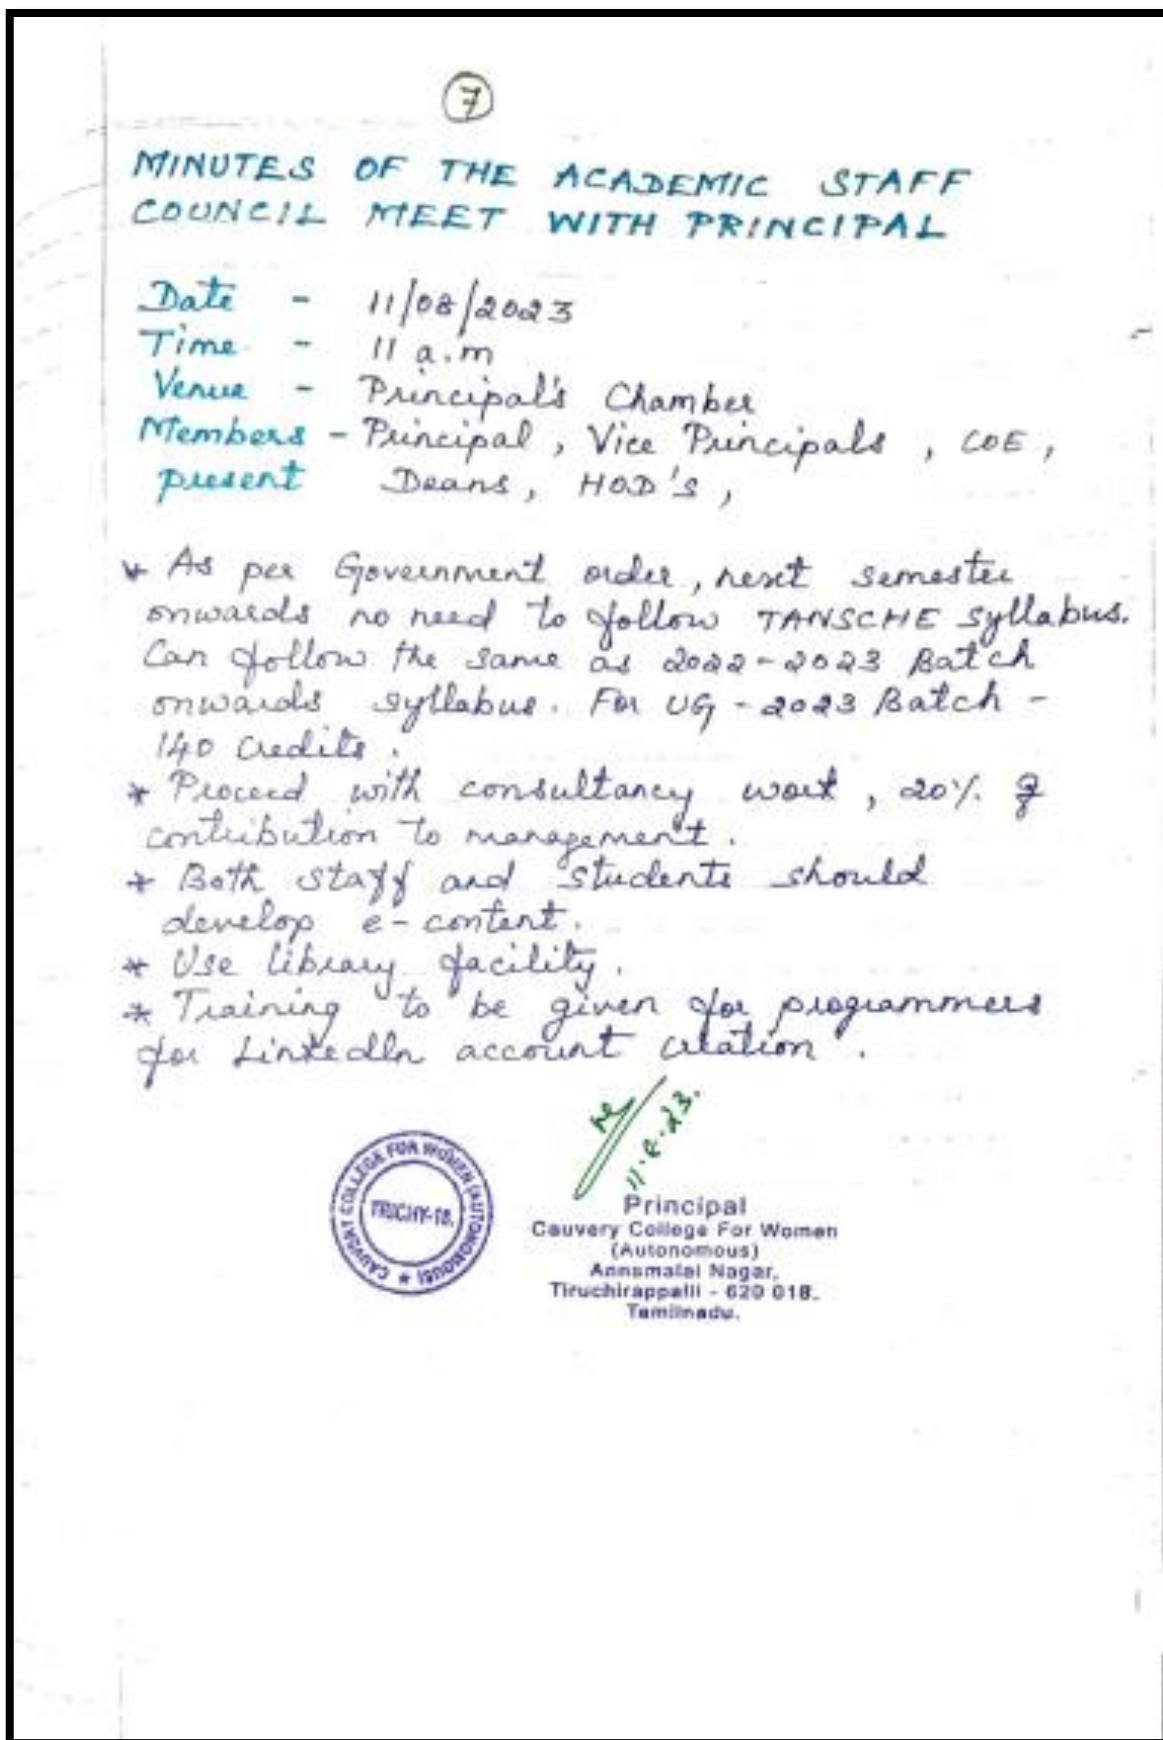 7
MINUTES OF THE ACADEMIC STAFF
COUNCIL MEET WITH PRINCIPAL
Date - 11/08/2023
Time - 11 a.m
Venue - Principal's Chamber
Members - Principal, Vice Principals, COE,
present Deans, HOD's,
* As per Government order, next semester
onwards no need to follow TANSCHE syllabus.
Can follow the same as 2022-2023 Batch
onwards syllabus. For UG - 2023 Batch -
140 credits.
* Proceed with consultancy work, 20% of
contribution to management.
* Both staff and students should
develop e-content.
* Use library facility.
* Training to be given for programmers
for LinkedIn account creation.
11.8.23.
CAUVERY COLLEGE FOR WOMEN (AUTONOMOUS) *
TRICHY-18.
Principal
Cauvery College For Women
(Autonomous)
Annamalai Nagar,
Tiruchirappalli - 620 018.
Tamilnadu.